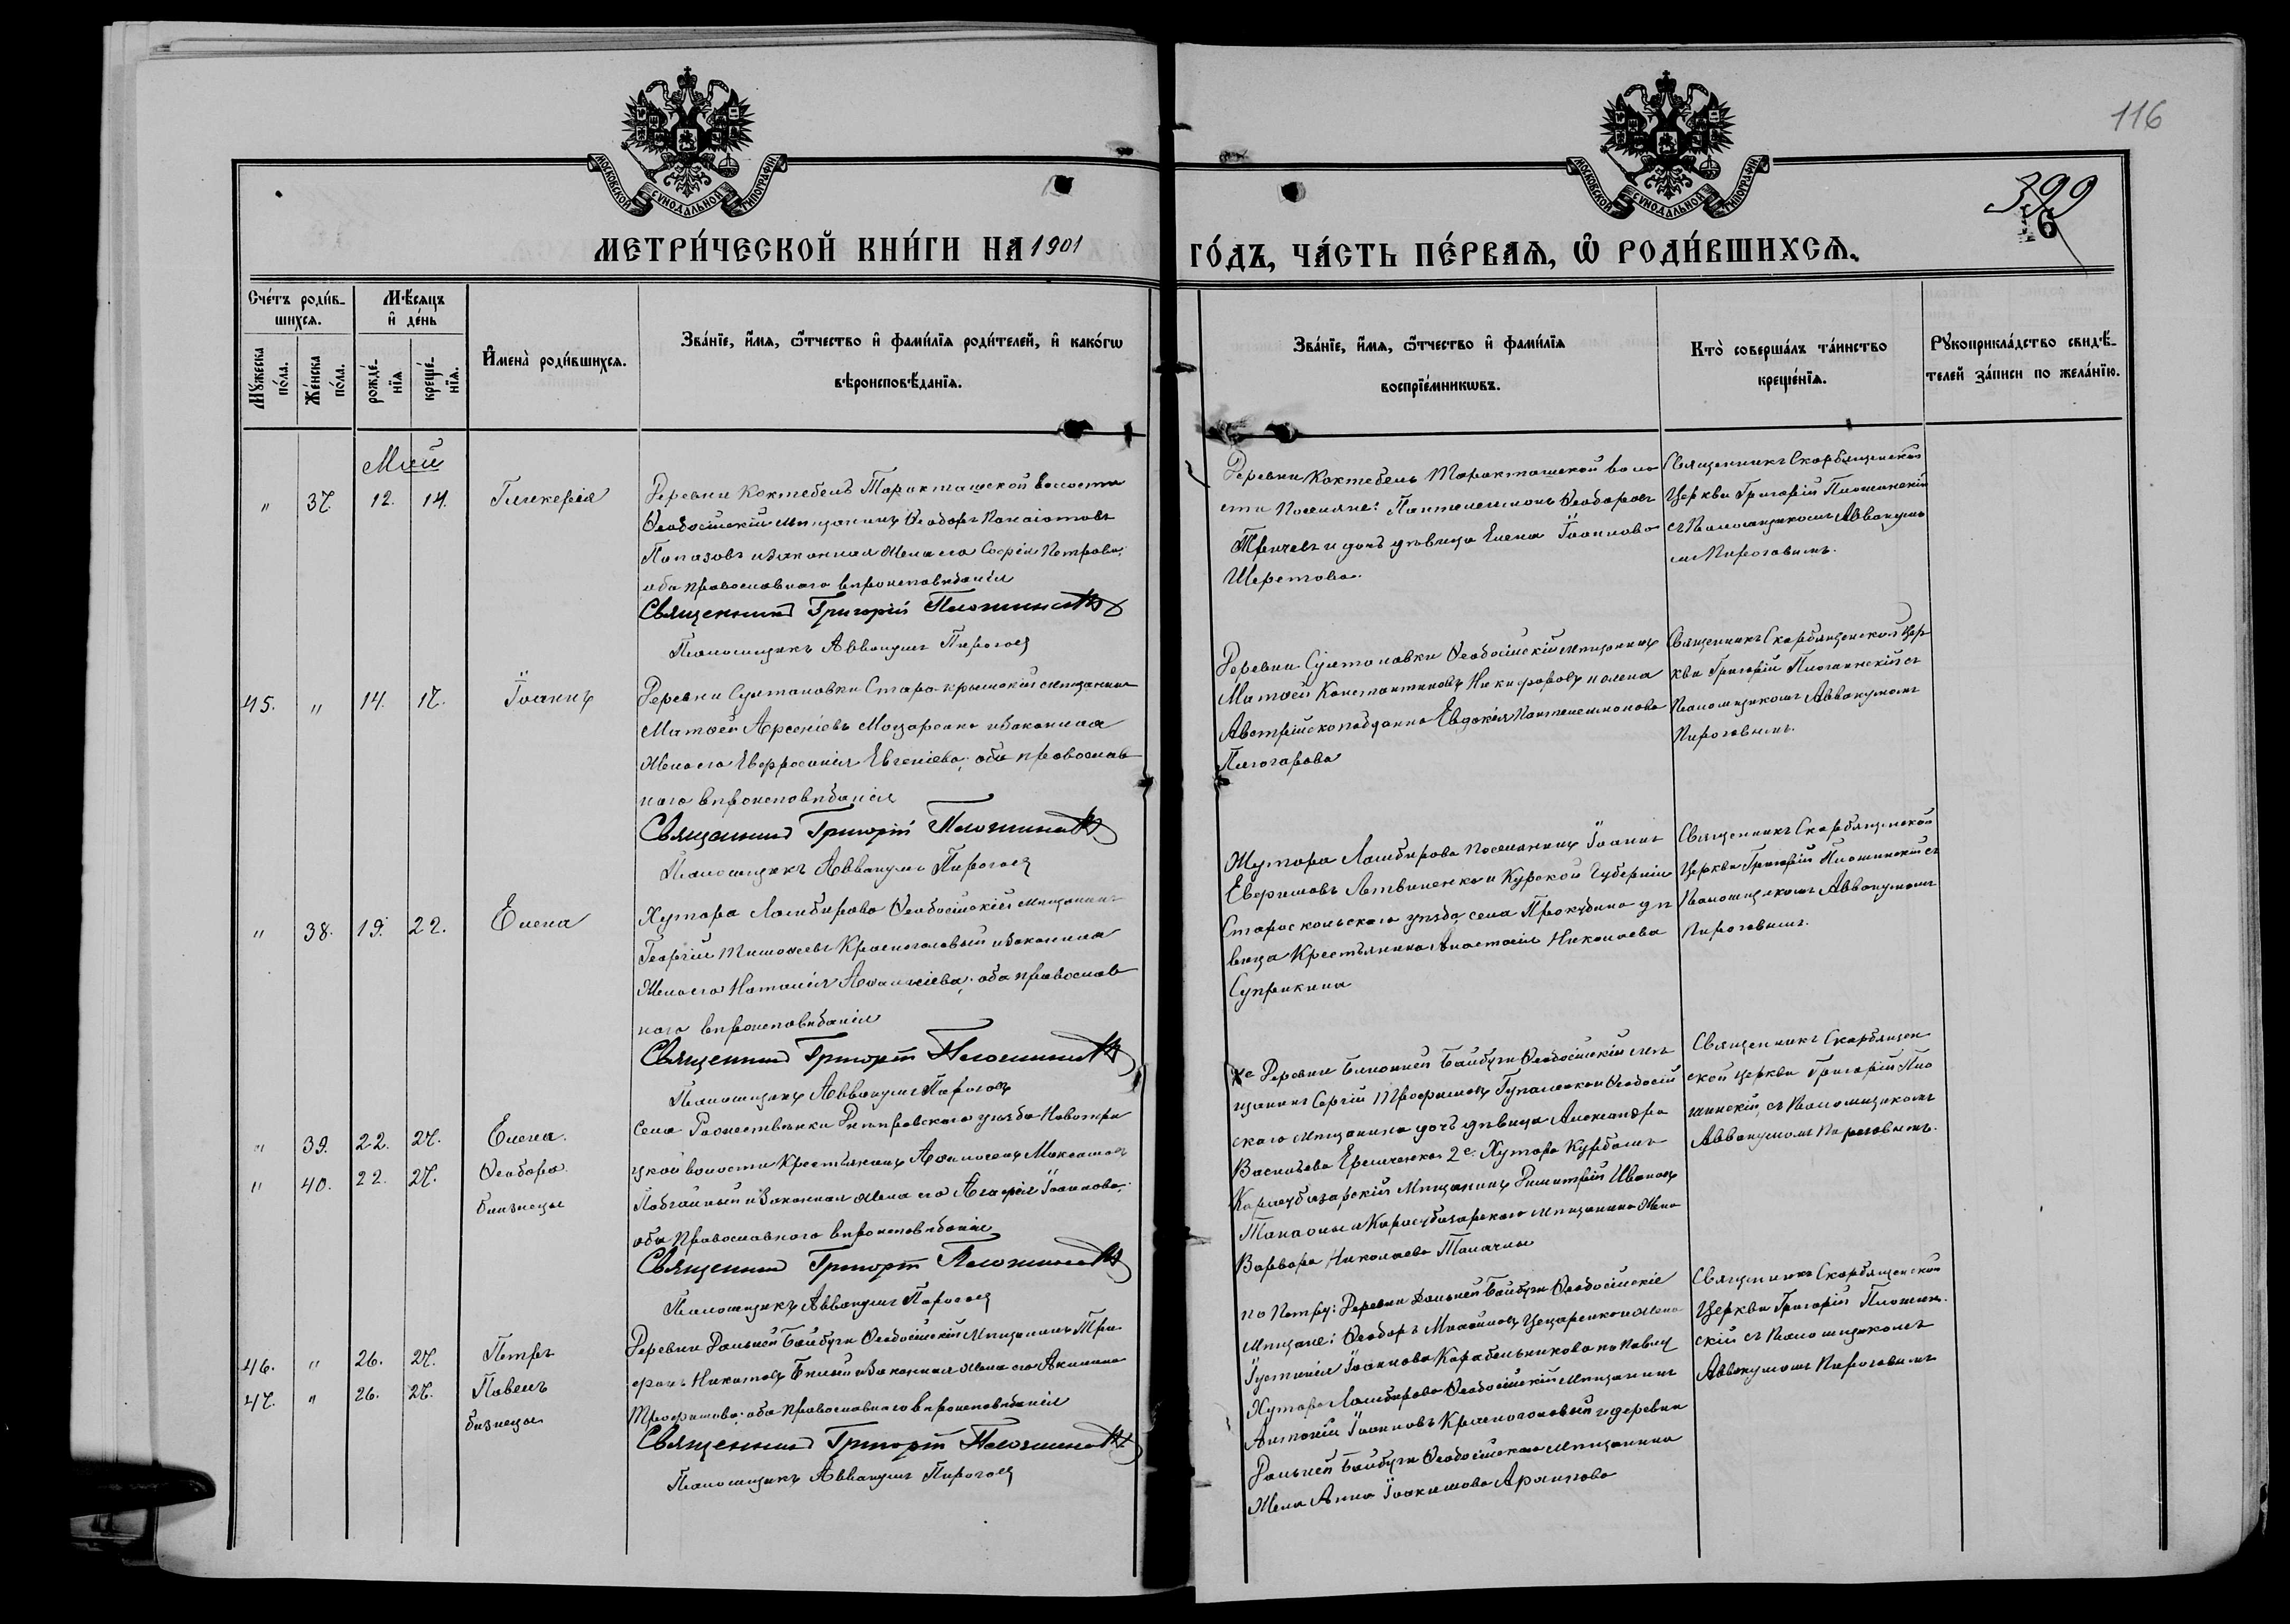 116
399
6
МОСКОВСКОЙ СѴНОДАЛЬНОЙ ТИПОГРАФІИ
МОСКОВСКОЙ СѴНОДАЛЬНОЙ ТИПОГРАФІИ
МЕТРИ́ЧЕСКОЙ КНИ́ГИ НА 1901 ГО́ДЪ, ЧА́СТЬ ПЕ́РВАѦ, Ѽ РОДИ́ВШИХСѦ.
Сче́тъ роди́в-
шихсѧ.
Мѣ́сяцъ
и҆ де́нь
Мꙋ́жеска
по́ла.
Же́нска
по́ла.
рожде́-
нїѧ
креще́-
нїѧ.
И҆мена̀ роди́вшихсѧ.
Зва́нїе, и҆́мѧ, ѻ҆́тчество и҆ фами́лїѧ роди́телей, и҆ како́гѡ
вѣроисповѣ́данїѧ.
Зва́нїе, и҆́мѧ, ѻ҆́тчество и҆ фами́лїѧ
воспрїе́мникѡвъ.
Кто̀ соверша́лъ та́инство
креще́нїѧ.
Рꙋкоприкла́дство свидѣ́-
телей за́писи по жела́нїю.
Май
" 37. 12. 14. Гликерія
Деревни Коктебель Таракташской волости
Ѳеодосійскій мѣщанинъ Ѳеодоръ Панаіотовъ
Папазовъ и законная жена его Софія Петрова,
оба православнаго вѣроисповѣданія
Священникъ Григорій
Псаломщикъ Аввакумъ Пироговъ
Деревни Коктебель Таракташской воло
сти поселяне: Пантелеимонъ Ѳеодоровъ
и дочь дѣвица Елена Іоаннова
Шеретова.
Священникъ Скорбященской
Церкви Григорій
съ Псаломщикомъ Аввакумо
мъ Пироговымъ.
45. " 14. 17. Іоаннъ
Деревни Султановки Старо-крымскій мѣщанинъ
Матѳей Арсеніевъ и законная
жена его Евфросинія Евгеніева; оба православ
наго вѣроисповѣданія
Священникъ Григорій
Псаломщикъ Аввакумъ Пироговъ
Деревни Султановки Ѳеодосійскій мѣщанинъ
Матѳей Константиновъ Никифоровъ и жена
Австрійскоподданна Евдокія Пантелеимонова
Священникъ Скорбященской Цер
кви Григорій съ
Псаломщикомъ Аввакумомъ
Пироговымъ.
" 38. 19. 22. Елена
Хутора Ламбирова Ѳеодосійскій мѣщанинъ
Георгій Тимоѳеевъ Красноголовый и законная
жена его Наталія Аѳанасіева; оба православ
наго вѣроисповѣданія
Священникъ Григорій
Псаломщикъ Аввакумъ Пироговъ
Хутора Ламбирова поселянинъ Іоаннъ
Евфимовъ Литвиненко и Курской Губерніи
Старооскольскаго уѣзда, села Прокудино дѣ
вица Крестьянина Анастасія Николаева
Супрыкина
Священникъ Скорбященской
Церкви Григорій съ
Псаломщикомъ Аввакумомъ
Пироговымъ.
" 39. 22. 27. Елена.
" 40. 22. 27. Ѳеодора
близнецы
Села Рождественки Днѣпровскаго уѣзда Новотро
ицкой волости Крестьянинъ Максимовъ
и Законная жена его Агафія Іоаннова;
оба Православнаго вѣроисповѣданія
Священникъ Григорій
Псаломщикъ Аввакумъ Пироговъ
Деревни Ближней Байбуги Ѳеодосійскій мѣ
щанинъ Сергій Трофимовъ Ѳеодосій
скаго мѣщанина дочь дѣвица Александра
Васильева Еремченко 2е. Хутора Курбашъ
Карасубазарскій Мѣщанинъ Димитрій Ивановъ
и Карасубазарскаго мѣщанина жена
Варвара Николаева
Священникъ Скорбящен
ской церкви Григорій
съ Псаломщикомъ
Аввакумомъ Пироговымъ.
46. " 26. 27. Петръ
47. " 26. 27. Павелъ
близнецы
Деревни Дальней Байбуги Ѳеодосійскій Мѣщанинъ Тро
фимъ Никитовъ Бѣлый и Законная жена его Акилина
Трофимова; оба православнаго вѣроисповѣданія
Священникъ Григорій
Псаломщикъ Аввакумъ Пироговъ
по Петру: Деревни Дальней Байбуги Ѳеодосійскіе
Мѣщане: Ѳеодоръ и жена
Іустинія Іоаннова Карабельникова по Павлу
Хутора Ламбирова Ѳеодосійскій мѣщанинъ
Антоній Іоанновъ Красноголовый и деревни
Дальней Байбуги Ѳеодосійскаго мѣщанина
жена Анна Іоакимова
Священникъ Скорбященской
Церкви Григорій
скій съ Псаломщикомъ
Аввакумомъ Пироговымъ